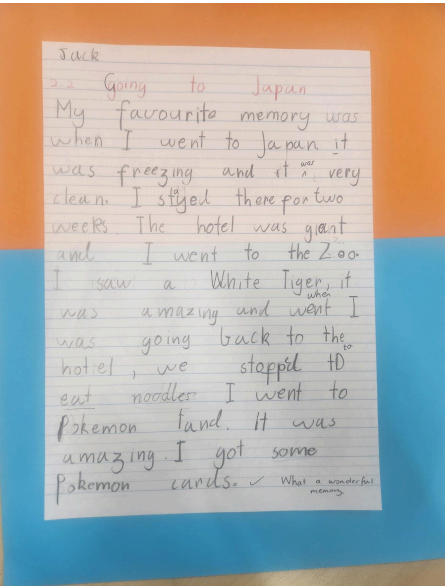 Jack
2.2 Going to Japan
My favourite memory was
when I went to Japan it
was freezing and it was very
clean. I stayed there for two
weeks. The hotel was giant
and I went to the Zoo.
I saw a White Tiger, it
was amazing and when I
was going back to the
hotiel, we stopp'd to
eat noodles I went to
Pokemon land. It was
amazing. I got some
Pokemon cards. ✓ What a wonderful
memory.